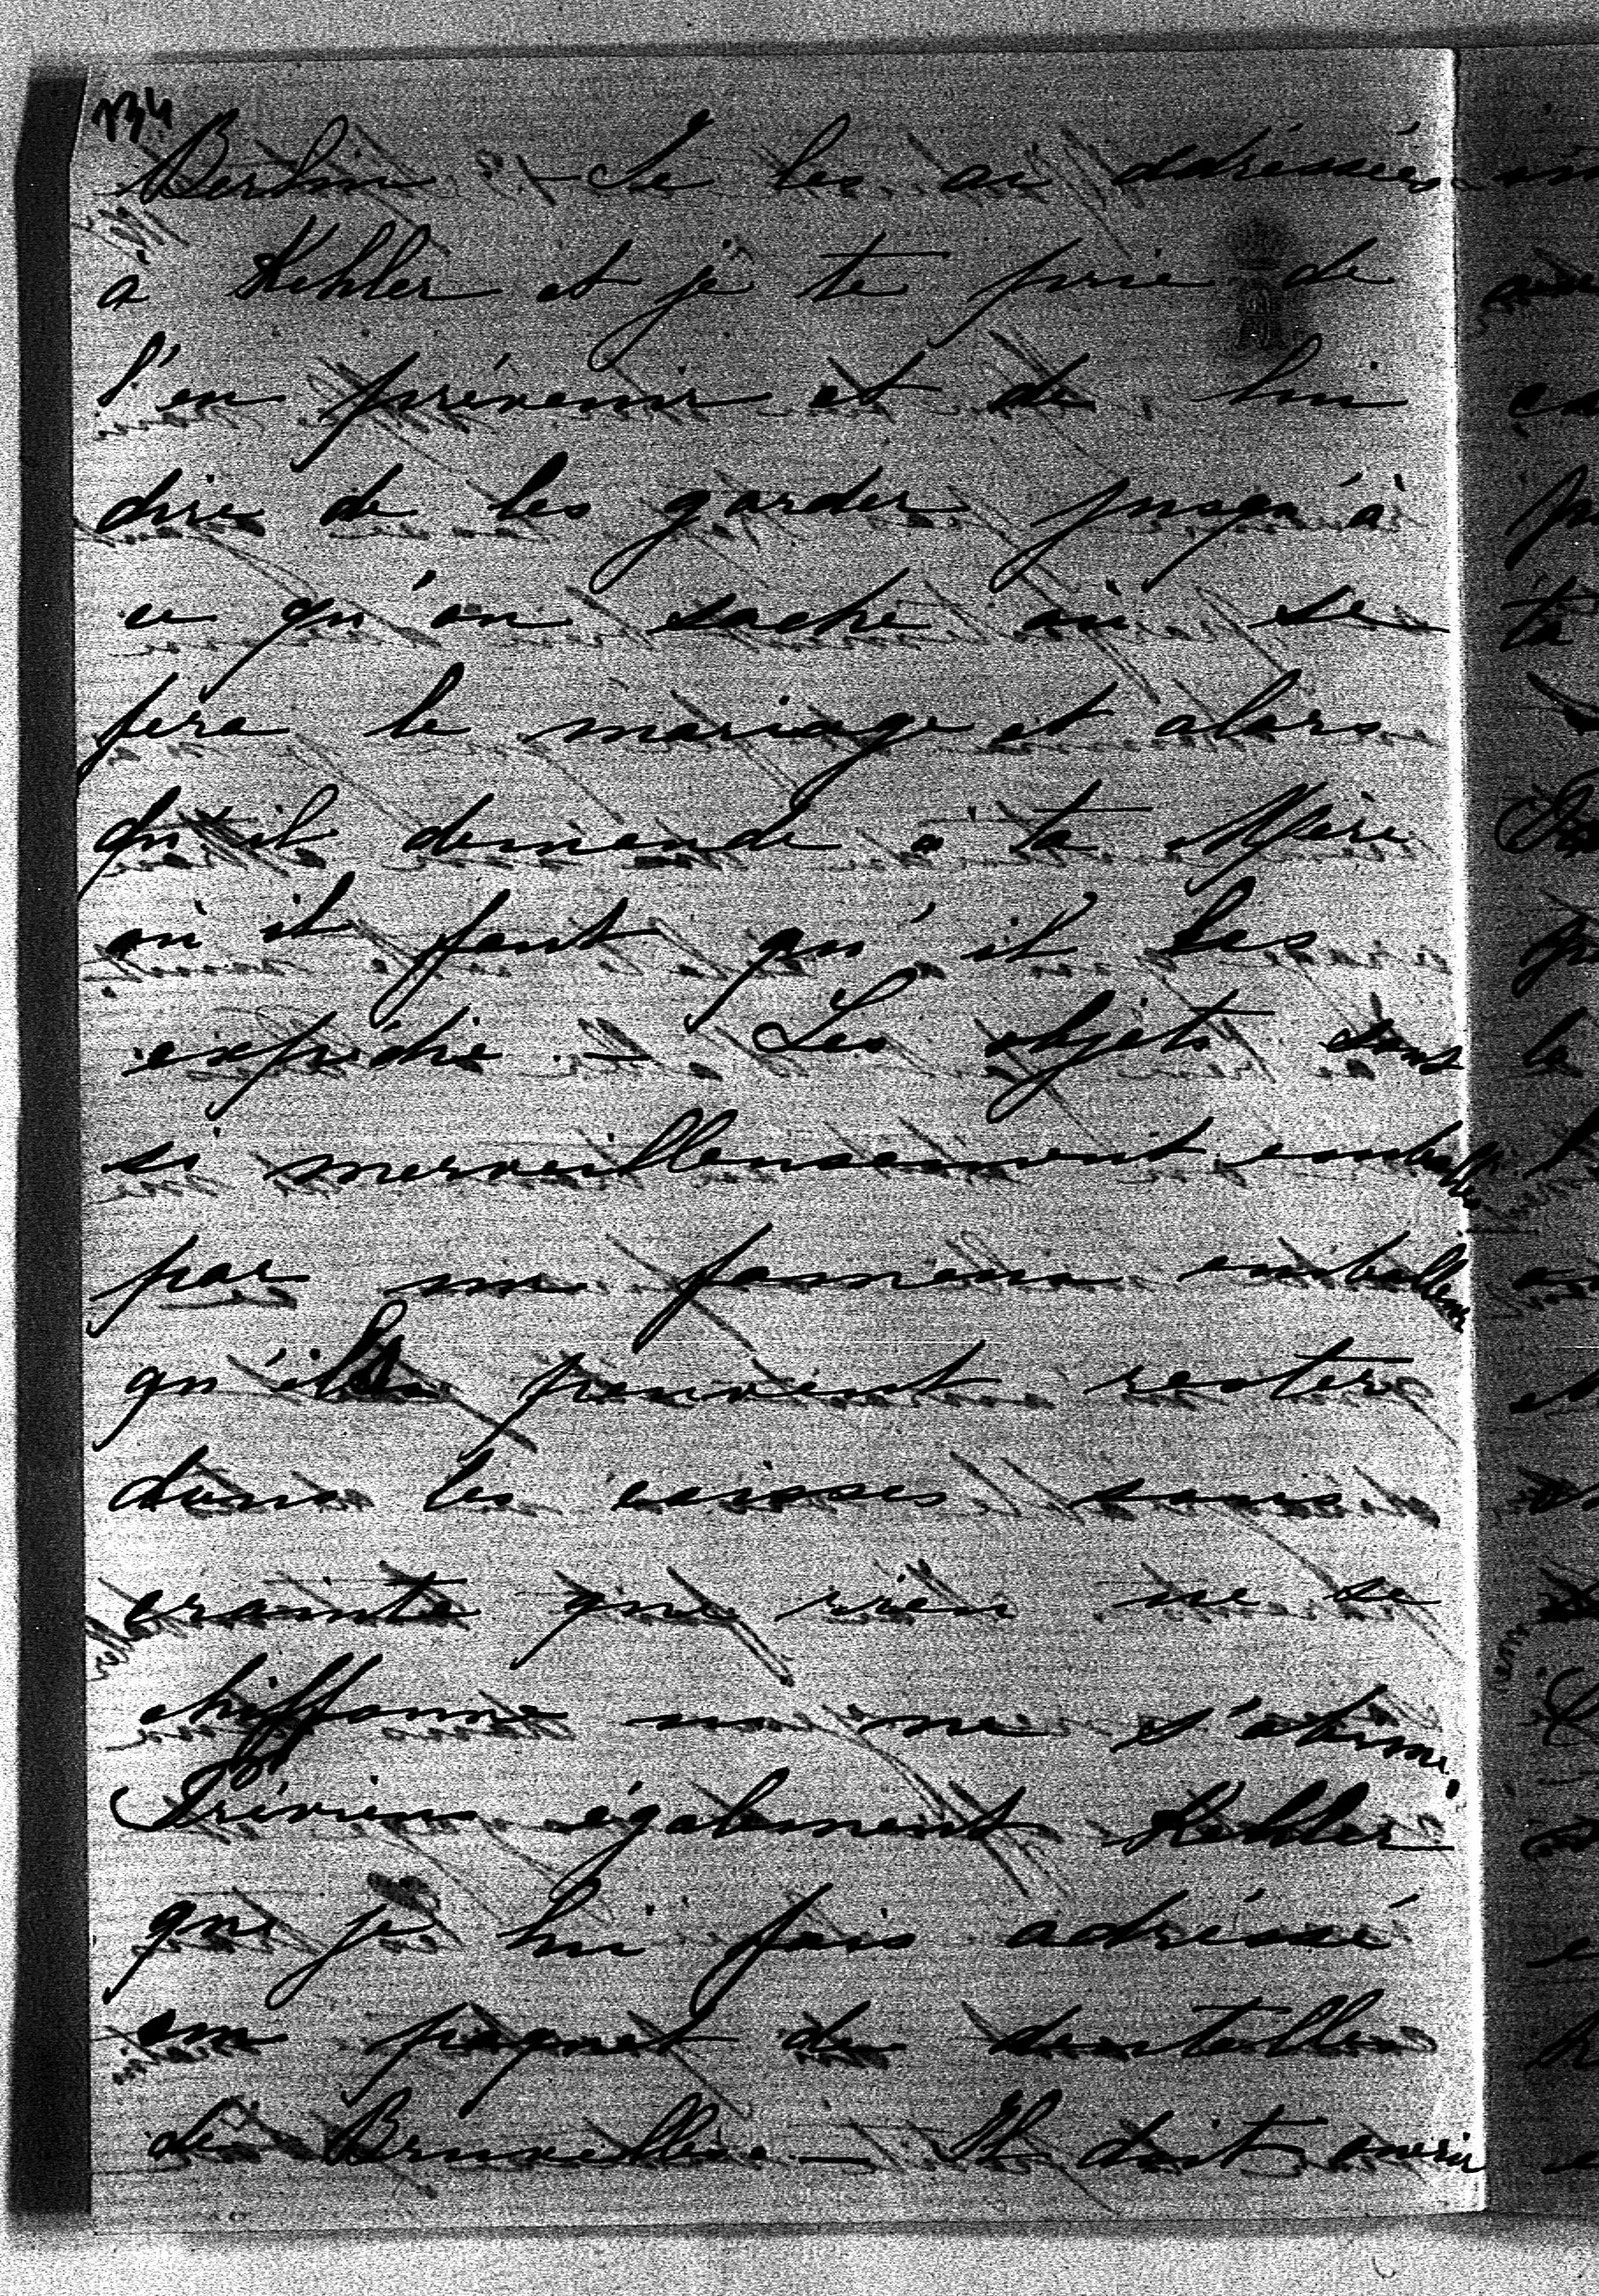 134
Berlin. — Je les ai addressées
à Kehler et je te prie de
l'en prévenir et de lui
dire de les garder jusqu'à
ce qu'on sache où se
fera le mariage et alors
qu'il demande à ta Mère
où il faut qu'il les
expédie. — Les objets sont
si merveilleusement emballés
par un fameux emballeur
qu'ils peuvent rester
dans les caisses sans
crainte que rien ne se
chiffonne ni ne s'abîme.
Préviens également Kehler
que je lui fais adressé
un paquet de dentelles
de Bruxelles. — Il doit ouvrir